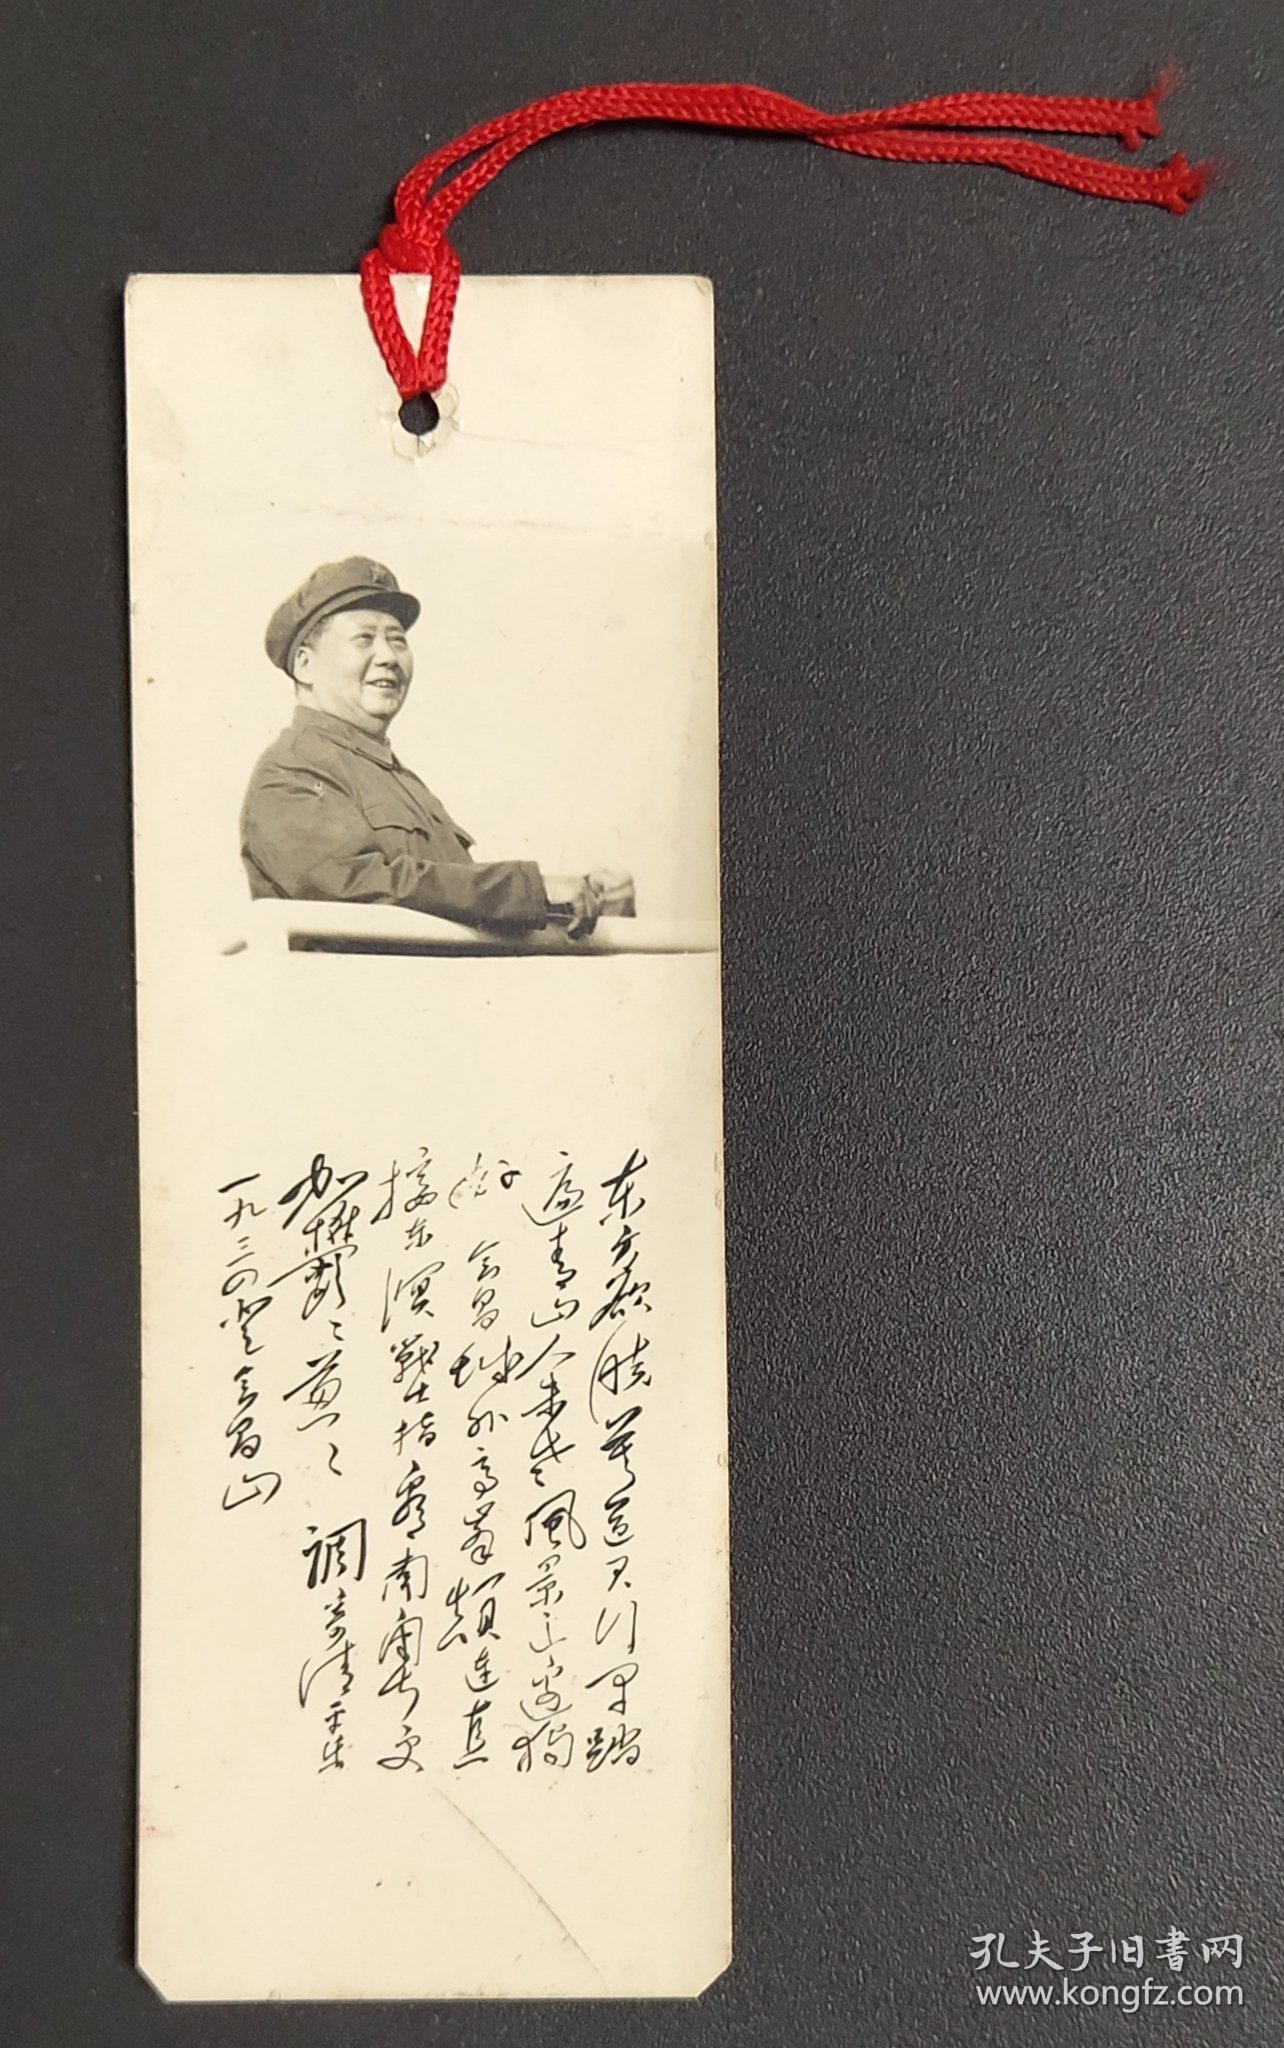 东方欲晓莫道君行早踏
遍青山人未老風景这边独
好 会昌城外高峯颠连直
接东溟戰士指看南粤更
加鬱〻葱〻 調寄清平乐
一九三四登会昌山
孔夫子旧書网
www.kongfz.com